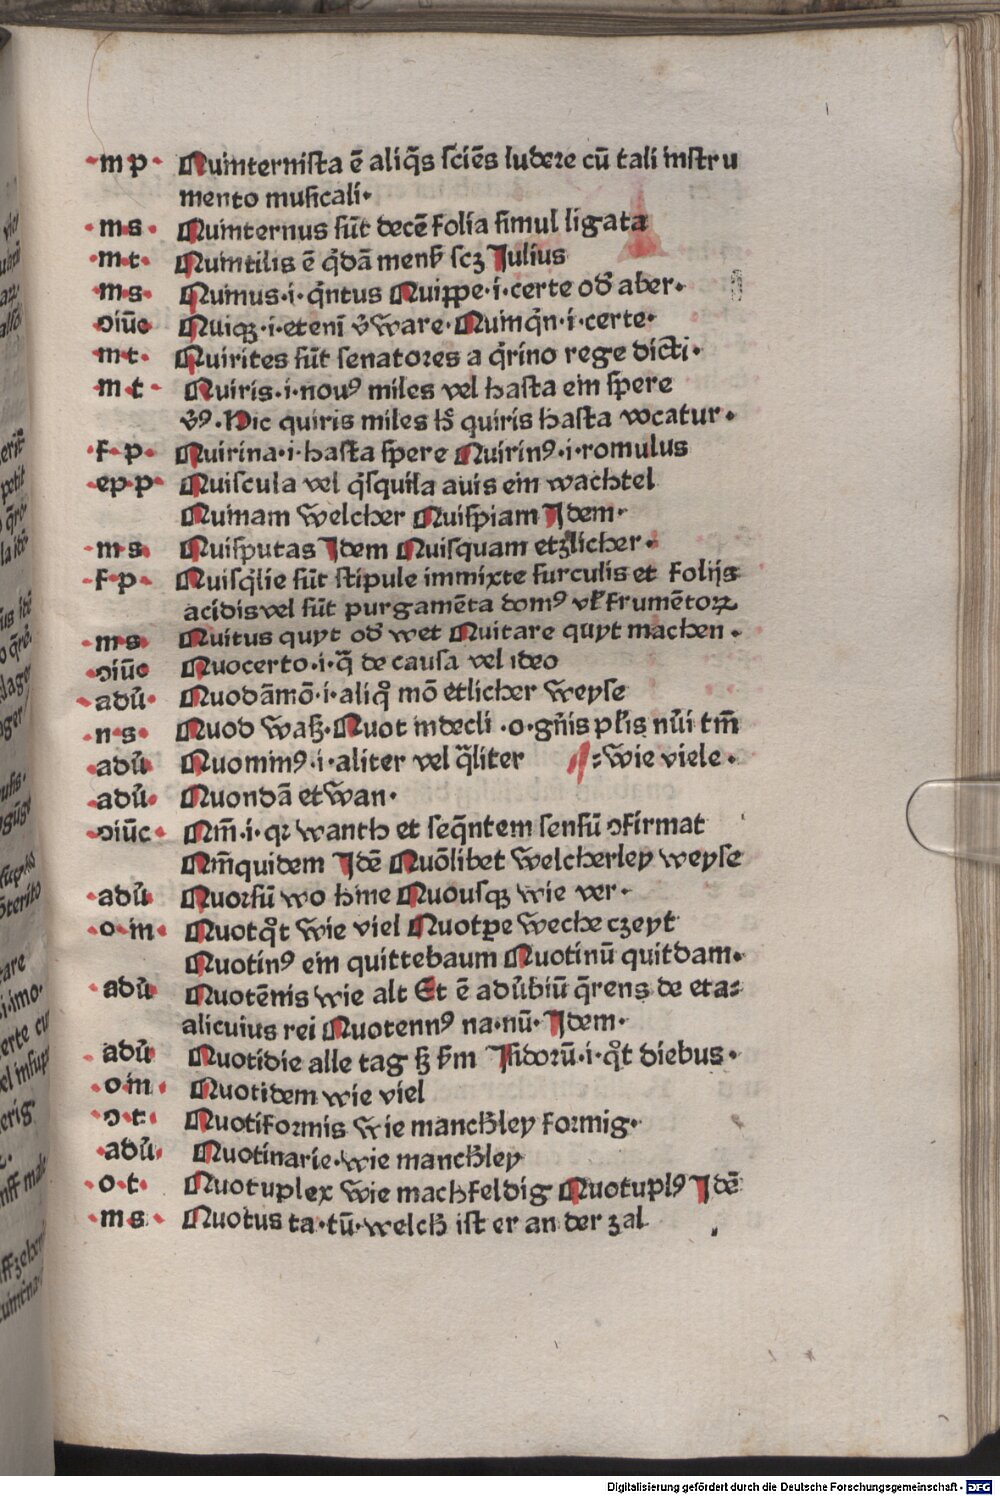 ·m p· Quinternista ē aliq̄s sciēs ludere cū tali instru
mento musicali·
·m s· Quinternus sūt decē folia simul ligata
·m t· Quintilis ē q̄dā menẜ scꝫ Julius
·m s· Quinus·i·q̄ntus Quippe·i·certe od̓ aber·
ↄiūc Quiqꝫ·i·etenī v̓ ware·Quinq̄n·i·certe·
m t· Quirites sūt senatores a q̄rino rege dicti·
m t· Quiris·i·nouꝰ miles vel hasta ein spere
v̓ꝰ·Hic quiris miles hꝰ quiris hasta vocatur·
·f p· Quirina·i·hasta spere Quirinꝰ·i·romulus
·ep p· Quiscula vel q̄squila auis ein wachtel
Quinam welcher Quispiam Jdem·
·m s· Quisputas Jdem Quisquam etzlicher·
·f p· Quisq̄lie sūt stipule immixte surculis et folijs
acidis vel sūt purgamēta domꝰ vł frumētoꝝ
·m s· Quitus quyt od̓ wet Quitare quyt machen·
ↄiūc Quocerto·i·q̄ de causa vel ideo
·adū· Quodāmō·i·aliq̊ mō etlicher weyse
·n s· Quod waß·Quot indecli·o·gn̄is pl̓is nūi tm̄
·adū· Quominꝰ·i·aliter vel q̄liter ⸗wie viele·
·adū· Quondā etwan·
·ↄiūc· Qm̄·i·qꝛ wanth et seq̄ntem sensū ↄfirmat
Qm̄quidem Jdē Quōlibet welcherley weyse
·adū· Quorsū wo hine Quousqꝫ wie ver·
·o m· Quotq̊t wie viel Quotpe weche czeyt
Quotinꝰ ein quittebaum Quotinū quitdam·
·adū· Quotēnis wie alt Et ē adūbiū q̄rens de eta⸗
alicuius rei Quotennꝰ na·nū·Jdem·
·adū· Quotidie alle tag ẜꝫ ẜm Jsidorū·i·q̊t diebus·
·o m· Quotidem wie viel
·o t· Quotiformis wie manch̓ley formig·
·adū· Quotinarie·wie manch̓ley
·o·t· Quotuplex wie machfeldig Quotuplꝰ Jdē
·m s· Quotus ta·tū·welch̓ ist er an der zal
Digitalisierung gefördert durch die Deutsche Forschungsgemeinschaft · DFG